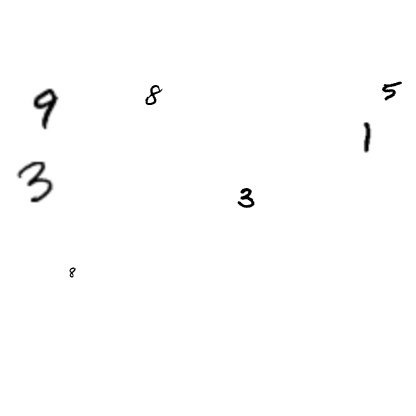 9 8 5
1
3 3
8